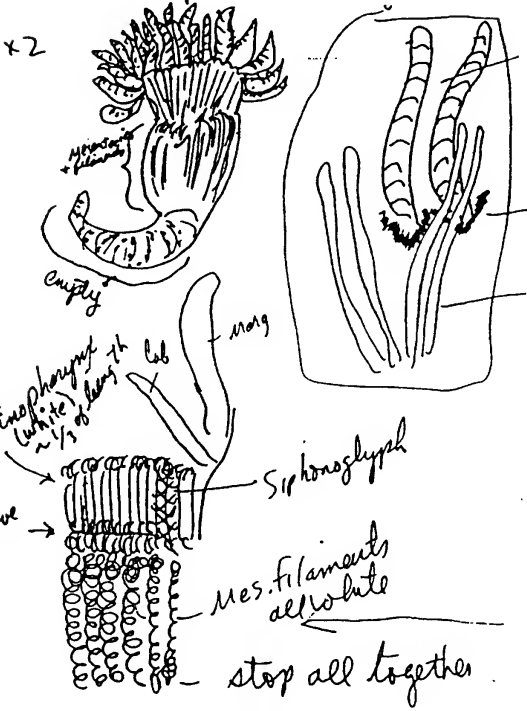 x2
Mesenteries
+ filaments
empty
marg
lab
(white)
~ 1/3 of length
Siphonoglyph
Mes. filaments
all white
stop all together